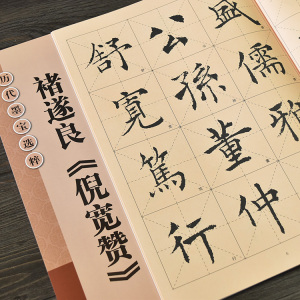 历代墨宝选粹
褚遂良《倪宽赞》
盛儒雅
公孫董仲
舒寬篤行